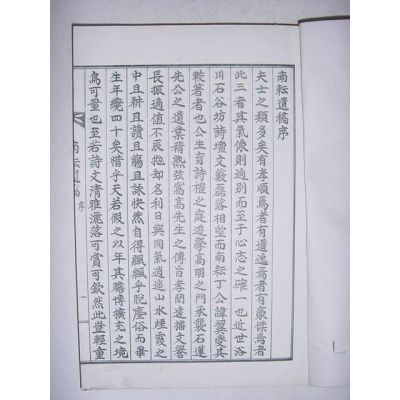 南耘遺稿序
夫士之類多矣有孝順焉者有道逸焉者有豪傑焉者
此三者其氣像則逈別而至于心志之確一也近世洛
川石谷坊詩壇文藪磊落相望而南耘丁公諱翼燮其
較著者也公生育詩禮之庭遊學高明之門承襲石蓮
先公之遺業精熟弦窩高先生之傳旨孝聞遠播文譽
長振適値不辰抱却名利日與同氣逍遙山水煙霞之
中且耕且讀且觴且詠快然自得飄飄乎脫塵俗而畢
生年纔四十矣惜乎天若假之以年其膓博擴充之境
烏可量也至若詩文清雅灑落可賞可欽然此豈輕重
南耘遺稿 序
一